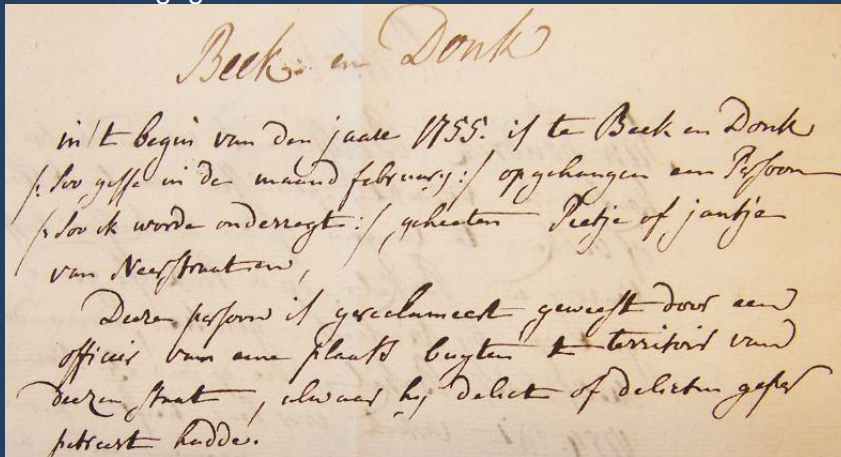 Beek en Donk
in 't begin van den jaare 1755. is te Beek en Donk
/: soo gisse in de maand february :/ opgehangen een Persoon
/: soo ik worde onderregt :/ geheeten Pietje of jantje
van Neerstraaten,
Deezen persoon is gereclameert geweest door een
officier van eene plaats buyten t territoir van
deezen staat, alwaar hij delict of delicten geper
petreert hadde.